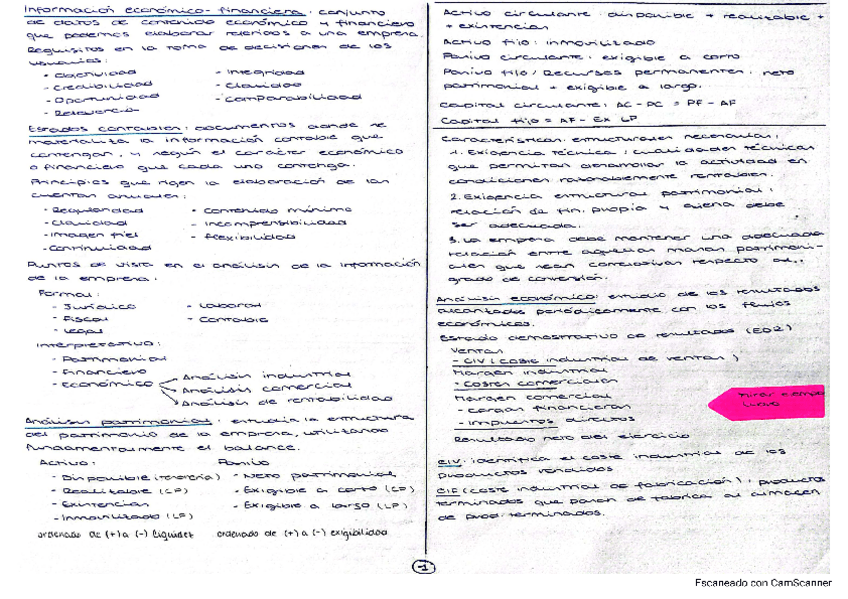 Información económico-financiera: conjunto
de datos de contenido económico y financiero
que podemos elaborar referidos a una empresa.
Requisitos en la toma de decisiones de los
usuarios:
- Objetividad - Integridad
- Credibilidad - Claridad
- Oportunidad - Comparabilidad
- Relevancia
Estados contables: documentos donde se
materializa la información contable que
contengan, y según el carácter económico
o financiero que cada uno contenga.
Principios que rigen la elaboración de las
cuentas anuales:
- Regularidad - Contenido mínimo
- Claridad - Incomprensibilidad
- Imagen fiel - Flexibilidad
- Continuidad
Puntos de vista en el análisis de la información
de la empresa:
Formal:
- Jurídico - Laboral
- Fiscal - Contable
- Legal
Interpretativo:
- Patrimonial
- Financiero
- Económico
Análisis industrial
Análisis comercial
Análisis de rentabilidad
Análisis patrimonial: estudia la estructura
del patrimonio de la empresa, utilizando
fundamentalmente el balance.
Activo: Pasivo
- Disponible (tesorería) - Neto patrimonial
- Realizable (CP) - Exigible a corto (CP)
- Existencias - Exigible a largo (LP)
- Inmovilizado (LP)
ordenado de (+) a (-) liquidez ordenado de (+) a (-) exigibilidad
Activo circulante: disponible + realizable +
+ existencias
Activo fijo: inmovilizado
Pasivo circulante: exigible a corto
Pasivo fijo/Recursos permanentes: neto
patrimonial + exigible a largo.
Capital circulante: AC - PC = PF - AF
Capital fijo = AF - Ex LP
Características estructurales necesarias:
1. Exigencia técnica: cualidades técnicas
que permitan desarrollar la actividad en
condiciones razonablemente rentables.
2. Exigencia estructural patrimonial:
relación de fin. propia y ajena debe
ser adecuada.
3. La empresa debe mantener una adecuada
relación entre aquellas masas patrimoni-
ales que sean correlativas respecto al
grado de conversión.
Análisis económico: estudio de los resultados
alcanzados periódicamente con los flujos
económicos.
Estado demostrativo de resultados (EDR)
Ventas
- CIV (coste industrial de ventas)
Margen industrial
- Costes comerciales
Margen comercial
- Cargas financieras
- Impuestos directos
Resultado neto del ejercicio
Mirar ejemplo
CIV: identifica el coste industrial de los
productos vendidos
CIF (coste industrial de fabricación): productos
terminados que pasan de fábrica al almacén
de prod. terminados.
-1
Escaneado con CamScanner